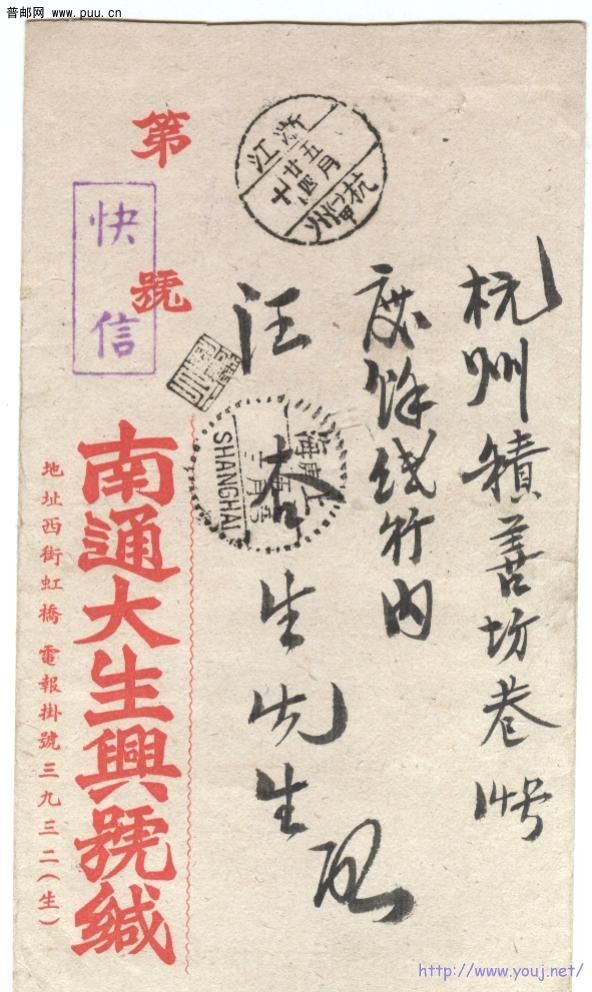 普邮网 www.puu.cn
杭州積善坊巷
庆馀线行内
汪杏生先生
第 號
快信
浙江
杭州
五月
廿四
十
上海
SHANGHAI
南通大生興號緘
地址西街虹橋 電報掛號三九三二(生)
http://www.youj.net/